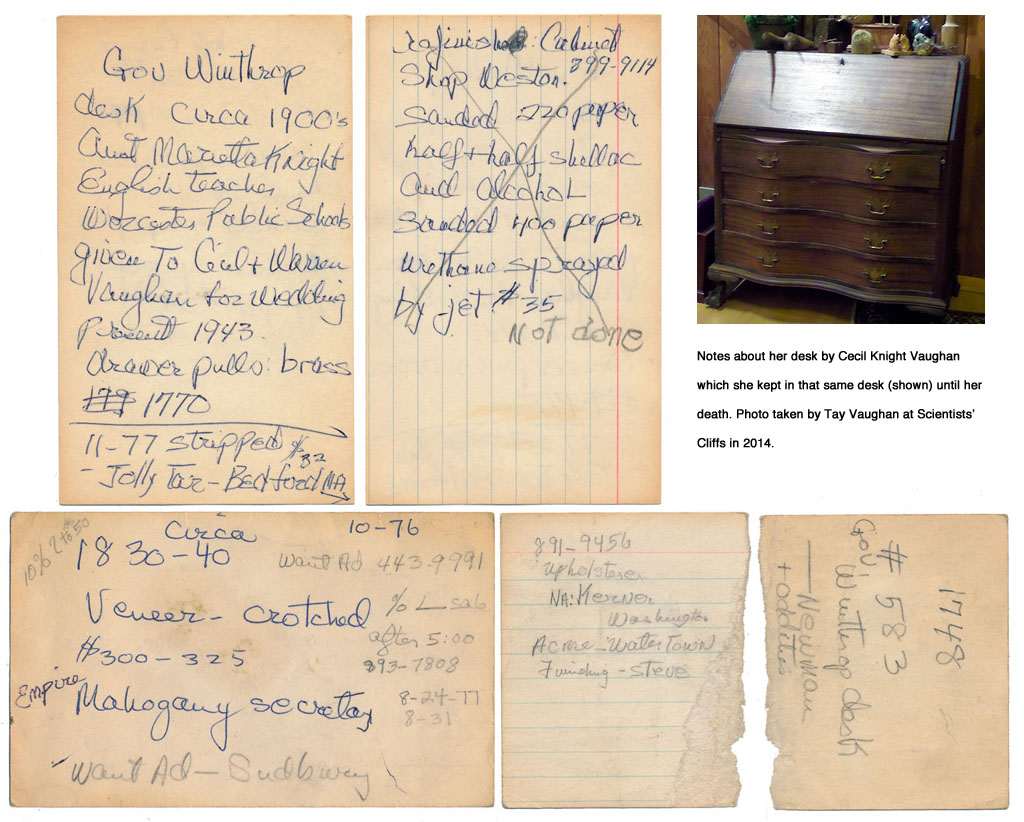 Gov Winthrop
desk Circa 1900's
Aunt Marietta Knight
English teacher
Worcester Public Schools
given To Cecil + Warren
Vaughan for Wedding
Present 1943.
drawer pulls: brass
1770
11-77 stripped $32
- Jolly Tar - Bedford MA.
refinished: Cabinet
Shop Weston. 899-9114
Sanded 220 paper
half + half shellac
And alcohol
Sanded 400 paper
Urethane sprayed
by jet $35
Not done
Notes about her desk by Cecil Knight Vaughan
which she kept in that same desk (shown) until her
death. Photo taken by Tay Vaughan at Scientists'
Cliffs in 2014.
Circa 10-76
1830-40
Want Ad 443-9991
Veneer - crotched
after 5:00
$300-325
893-7808
Empire
Mahogany secretary
8-24-77
8-31
Want Ad - Sudbury
891-9456
Upholsterer
NA: Kerner
Washington
Acme - WaterTown
Finishing - Steve
1748
# 583
Gov Winthrop desk
Newman
+ oddities